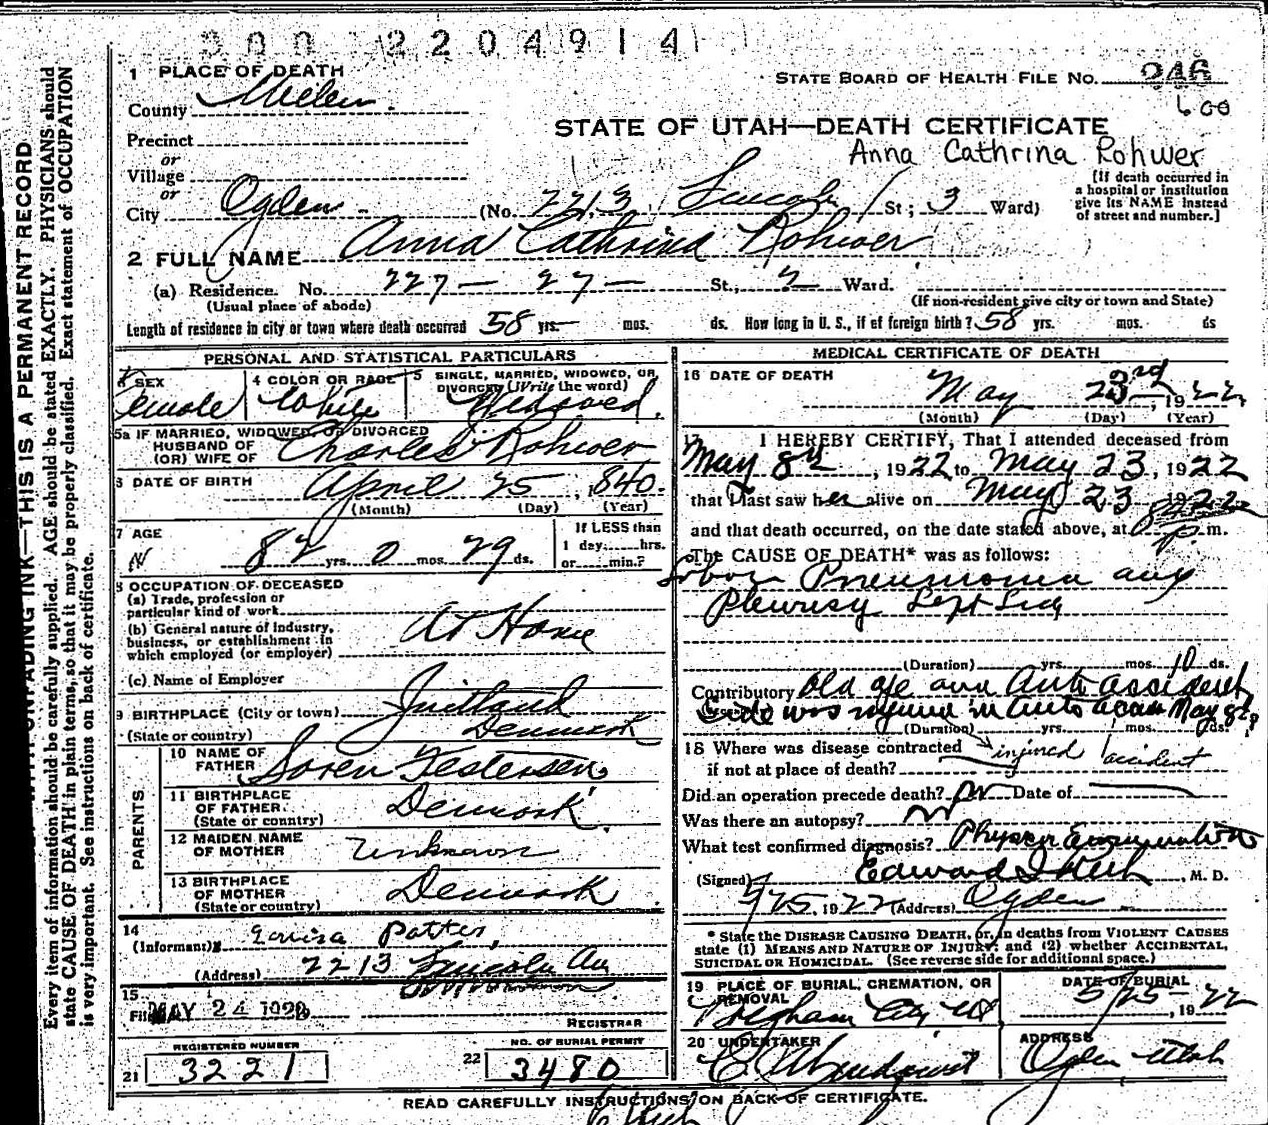 300 2204914
1 PLACE OF DEATH
STATE BOARD OF HEALTH FILE NO. 246
600
County
Precinct
STATE OF UTAH—DEATH CERTIFICATE
Anna Cathrina Rohwer
or
Village
or
City Ogden (No. 2213 Lincoln St; 3 Ward)
[If death occurred in
a hospital or institution
give its NAME instead
of street and number.]
2 FULL NAME Anna Cathrina Rohwer
(a) Residence. No. 227 - 27 - St., 2 Ward.
(Usual place of abode)
(If non-resident give city or town and State)
Length of residence in city or town where death occurred 58 yrs. mos. ds. How long in U. S., if of foreign birth? 58 yrs. mos. ds
PERSONAL AND STATISTICAL PARTICULARS
3 SEX
Female
4 COLOR OR RACE
White
5 SINGLE, MARRIED, WIDOWED, OR
DIVORCED (Write the word)
Widowed.
5a IF MARRIED, WIDOWED, OR DIVORCED
HUSBAND OF
(OR) WIFE OF Charles Rohwer
6 DATE OF BIRTH April 25, 1840.
(Month) (Day) (Year)
7 AGE
82 yrs. 0 mos. 29 ds.
If LESS than
1 day,......hrs.
or......min.?
8 OCCUPATION OF DECEASED
(a) Trade, profession or
particular kind of work
(b) General nature of industry,
business, or establishment in
which employed (or employer)
At Home
(c) Name of Employer
9 BIRTHPLACE (City or town)
(State or country)
Juitland
Denmark
PARENTS
10 NAME OF
FATHER Soren
11 BIRTHPLACE
OF FATHER.
(State or country)
Denmark
12 MAIDEN NAME
OF MOTHER Unknown
13 BIRTHPLACE
OF MOTHER
(State or country)
Denmark
14
(Informant) Louisa Potter
(Address) 2213 Lincoln Av
15
Filed MAY 24 1922
REGISTRAR
REGISTERED NUMBER
21 3221
NO. OF BURIAL PERMIT
22 3480
MEDICAL CERTIFICATE OF DEATH
16 DATE OF DEATH
May 23rd, 1922.
(Month) (Day) (Year)
17 I HEREBY CERTIFY, That I attended deceased from
May 8th, 1922 to May 23, 1922
that I last saw her alive on May 23 1922
and that death occurred, on the date stated above, at 8 p. m.
The CAUSE OF DEATH* was as follows:
Lobar Pneumonia and
Pleurisy Left Side
(Duration) yrs. mos. 10 ds.
Contributory Old age and Auto accident
was injured in Auto May 8th
(Duration) yrs. mos. ds.
18 Where was disease contracted
if not at place of death?
injured accident
Did an operation precede death? no Date of
Was there an autopsy? no
What test confirmed diagnosis? Physical Examination
(Signed) Edward I , M. D.
5/25, 1922 (Address) Ogden
* State the DISEASE CAUSING DEATH, or, in deaths from VIOLENT CAUSES
state (1) MEANS AND NATURE OF INJURY; and (2) whether ACCIDENTAL,
SUICIDAL OR HOMICIDAL. (See reverse side for additional space.)
19 PLACE OF BURIAL, CREMATION, OR
REMOVAL
Brigham City Ut
DATE OF BURIAL
5/25 - 22
, 19
20 UNDERTAKER
ADDRESS
Ogden Utah
READ CAREFULLY INSTRUCTIONS ON BACK OF CERTIFICATE.
UNFADING INK—THIS IS A PERMANENT RECORD
Every item of information should be carefully supplied. AGE should be stated EXACTLY. PHYSICIANS should
state CAUSE OF DEATH in plain terms, so that it may be properly classified. Exact statement of OCCUPATION
is very important. See instructions on back of certificate.